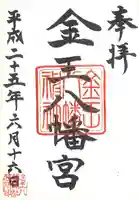 奉拝
金王八幡宮
平成二十五年六月十六日